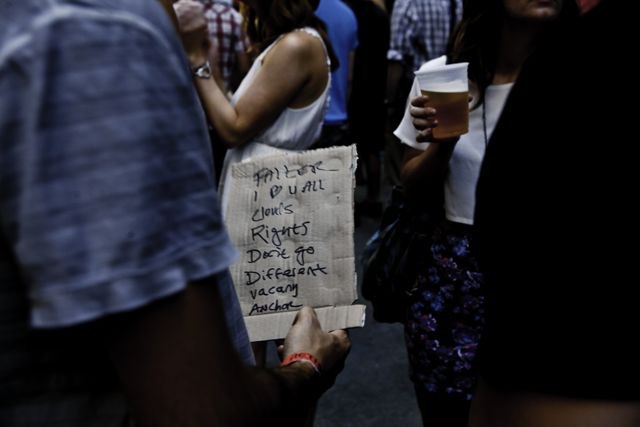 FAILURE
I ♥ U ALL
Clouds
Rights
Don't go
Different
vacancy
ANCHOR